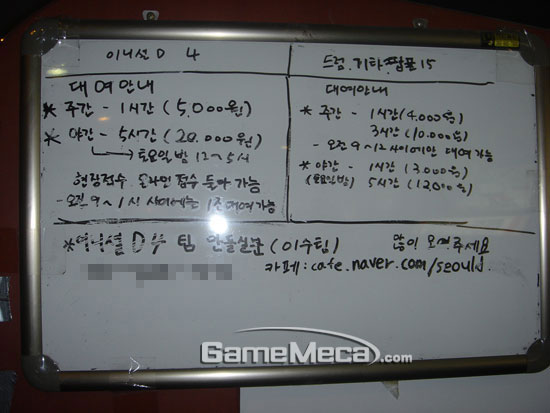 이니셜 D 4
대여안내
* 주간 - 1시간 (5,000원)
* 야간 - 5시간 (20,000원)
토요일밤 12~5시
현장접수 온라인 접수 둘다 가능
- 오전 9~1시 사이에는 1존 대여 가능
드럼.기타.팝픈15
대여안내
* 주간 - 1시간 (4,000원)
3시간 (10,000원)
- 오전 9~12 사이에만 대여 가능
* 야간 - 1시간 (3,000원)
(토요일밤) 5시간 (12,000원)
*이니셜 D 4 팀 (이수팀) 많이 오세요
카페: cafe.naver.com/seould.
GameMeca.com